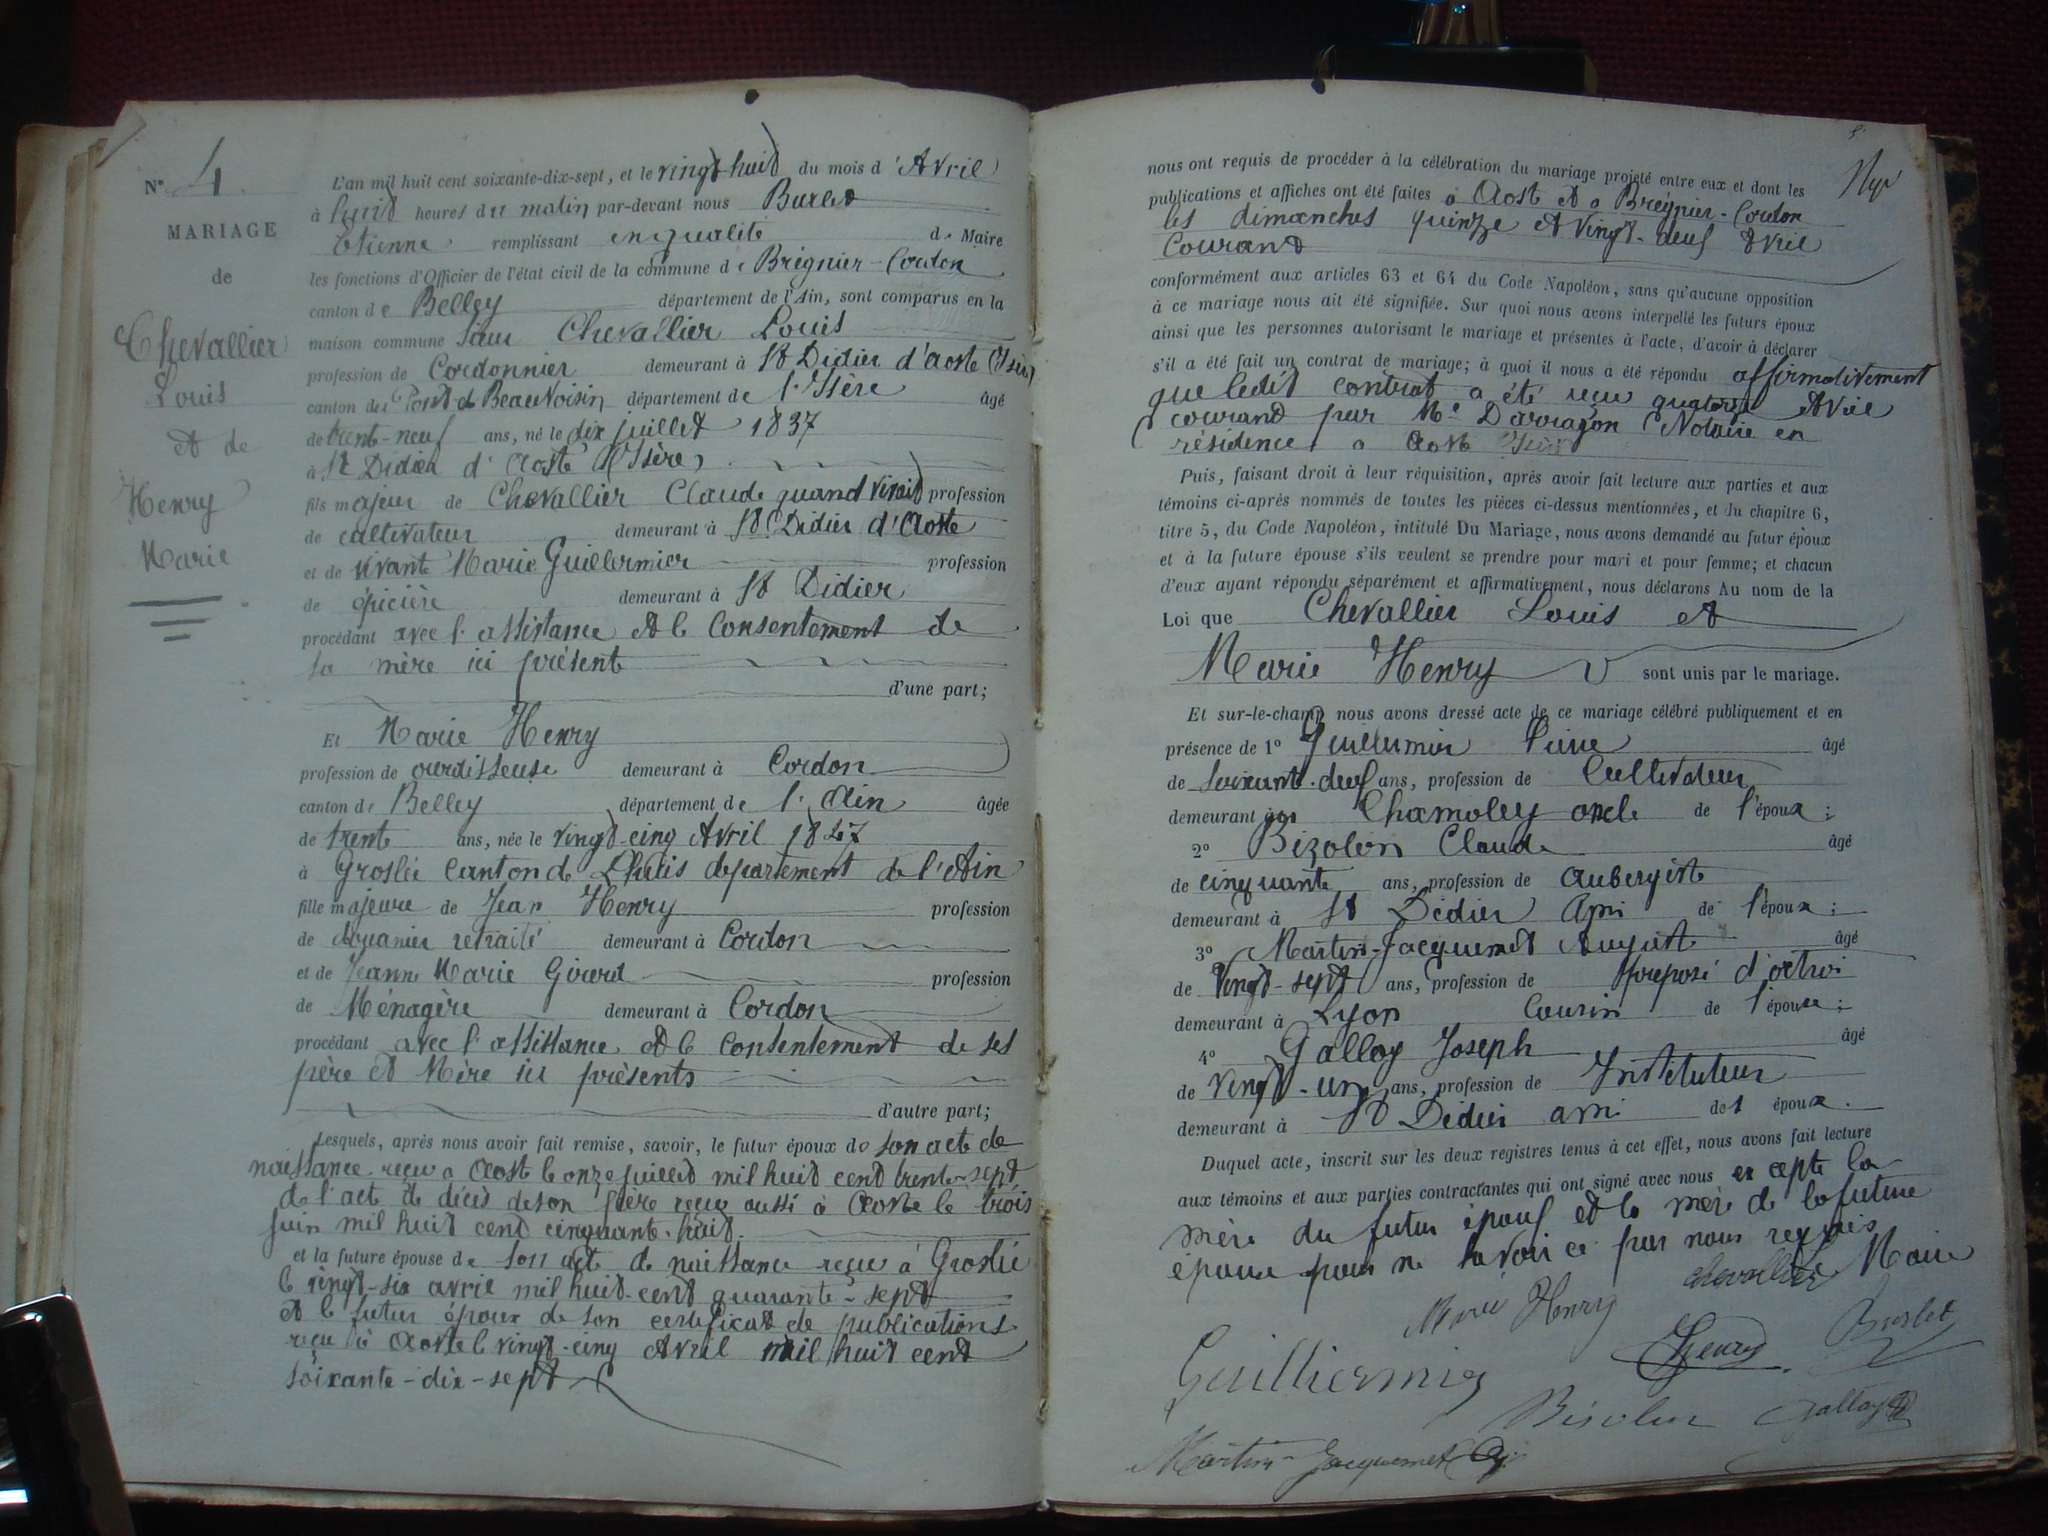 N° 4
MARIAGE
de
Chevallier
Louis
et de
Henry
Marie
L'an mil huit cent soixante-dix-sept, et le vingt-huit du mois d'Avril
à huit heures du matin par-devant nous Burlet
Etienne remplissant en qualité de Maire
les fonctions d'Officier de l'état civil de la commune de Brégnier-Cordon
canton de Belley département de l'Ain, sont comparus en la
maison commune Sieur Chevallier Louis
profession de Cordonnier demeurant à St Didier d'Aoste (Isère)
canton du Pont-de Beauvoisin département de l'Isère âgé
de trente-neuf ans, né le dix juillet 1837
à St Didier d'Aoste (Isère)
fils majeur de Chevallier Claude quand vivait profession
de cultivateur demeurant à St Didier d'Aoste
et de vivante Marie Guillermier profession
de épicière demeurant à St Didier
procédant avec l'assistance et le consentement de
sa mère ici présent
d'une part;
Et Marie Henry
profession de ourdisseuse demeurant à Cordon
canton de Belley département de l'Ain âgée
de trente ans, née le vingt-cinq Avril 1847
à Groslée canton de Lhuis departement de l'Ain
fille majeure de Jean Henry profession
de douanier retraité demeurant à Cordon
et de Jeanne Marie Girard profession
de Ménagère demeurant à Cordon
procédant avec l'assistance et le consentement de ses
père et Mère ici présents
d'autre part;
Lesquels, après nous avoir fait remise, savoir, le futur époux de son acte de
naissance reçu a Aoste le onze juillet mil huit cent trente-sept
de l'acte de décès de son père reçu aussi à Aoste le trois
juin mil huit cent cinquante-huit.
et la future épouse de son acte de naissance reçu à Groslée
le vingt-six avril mil huit-cent quarante-sept
et le futur époux de son certificat de publications
reçu à Aoste le vingt-cinq Avril mil huit cent
soixante-dix-sept
nous ont requis de procéder à la célébration du mariage projeté entre eux et dont les
publications et affiches ont été faites à Aoste et a Brégnier-Cordon
les dimanches quinze et vingt-deux Avril
Courant
conformément aux articles 63 et 64 du Code Napoléon, sans qu'aucune opposition
à ce mariage nous ait été signifiée. Sur quoi nous avons interpellé les futurs époux
ainsi que les personnes autorisant le mariage et présentes à l'acte, d'avoir à déclarer
s'il a été fait un contrat de mariage; à quoi il nous a été répondu affirmativement
que ledit contrat a été reçu quatorze Avril
courant par Me Darragon Notaire en
résidence a Aoste Isère
Puis, faisant droit à leur réquisition, après avoir fait lecture aux parties et aux
témoins ci-après nommés de toutes les pièces ci-dessus mentionnées, et du chapitre 6,
titre 5, du Code Napoléon, intitulé Du Mariage, nous avons demandé au futur époux
et à la future épouse s'ils veulent se prendre pour mari et pour femme; et chacun
d'eux ayant répondu séparément et affirmativement, nous déclarons Au nom de la
Loi que Chevallier Louis et
Marie Henry sont unis par le mariage.
Et sur-le-champ nous avons dressé acte de ce mariage célébré publiquement et en
présence de 1° Guillermier Pierre âgé
de soixante-deux ans, profession de Cultivateur
demeurant à Chamoley oncle de l'époux;
2° Bizolon Claude âgé
de cinquante ans, profession de aubergiste
demeurant à St Didier Ami de l'époux;
3° Martin-Jacquemet August âgé
de Vingt-sept ans, profession de préposé d'octroi
demeurant à Lyon Cousin de l'épouse;
4° Gallay Joseph âgé
de vingt-un ans, profession de Instituteur
demeurant à St Didier ami de l époux.
Duquel acte, inscrit sur les deux registres tenus à cet effet, nous avons fait lecture
aux témoins et aux parties contractantes qui ont signé avec nous excepte la
mère du futur époux et la mère de la future
épouse pour ne savoir ce par nous requis
Chevallier L Maire
Marie Henry
Henry
Burlet
Guilliermier
Bisolon
Gallay
Martin-Jacquemet